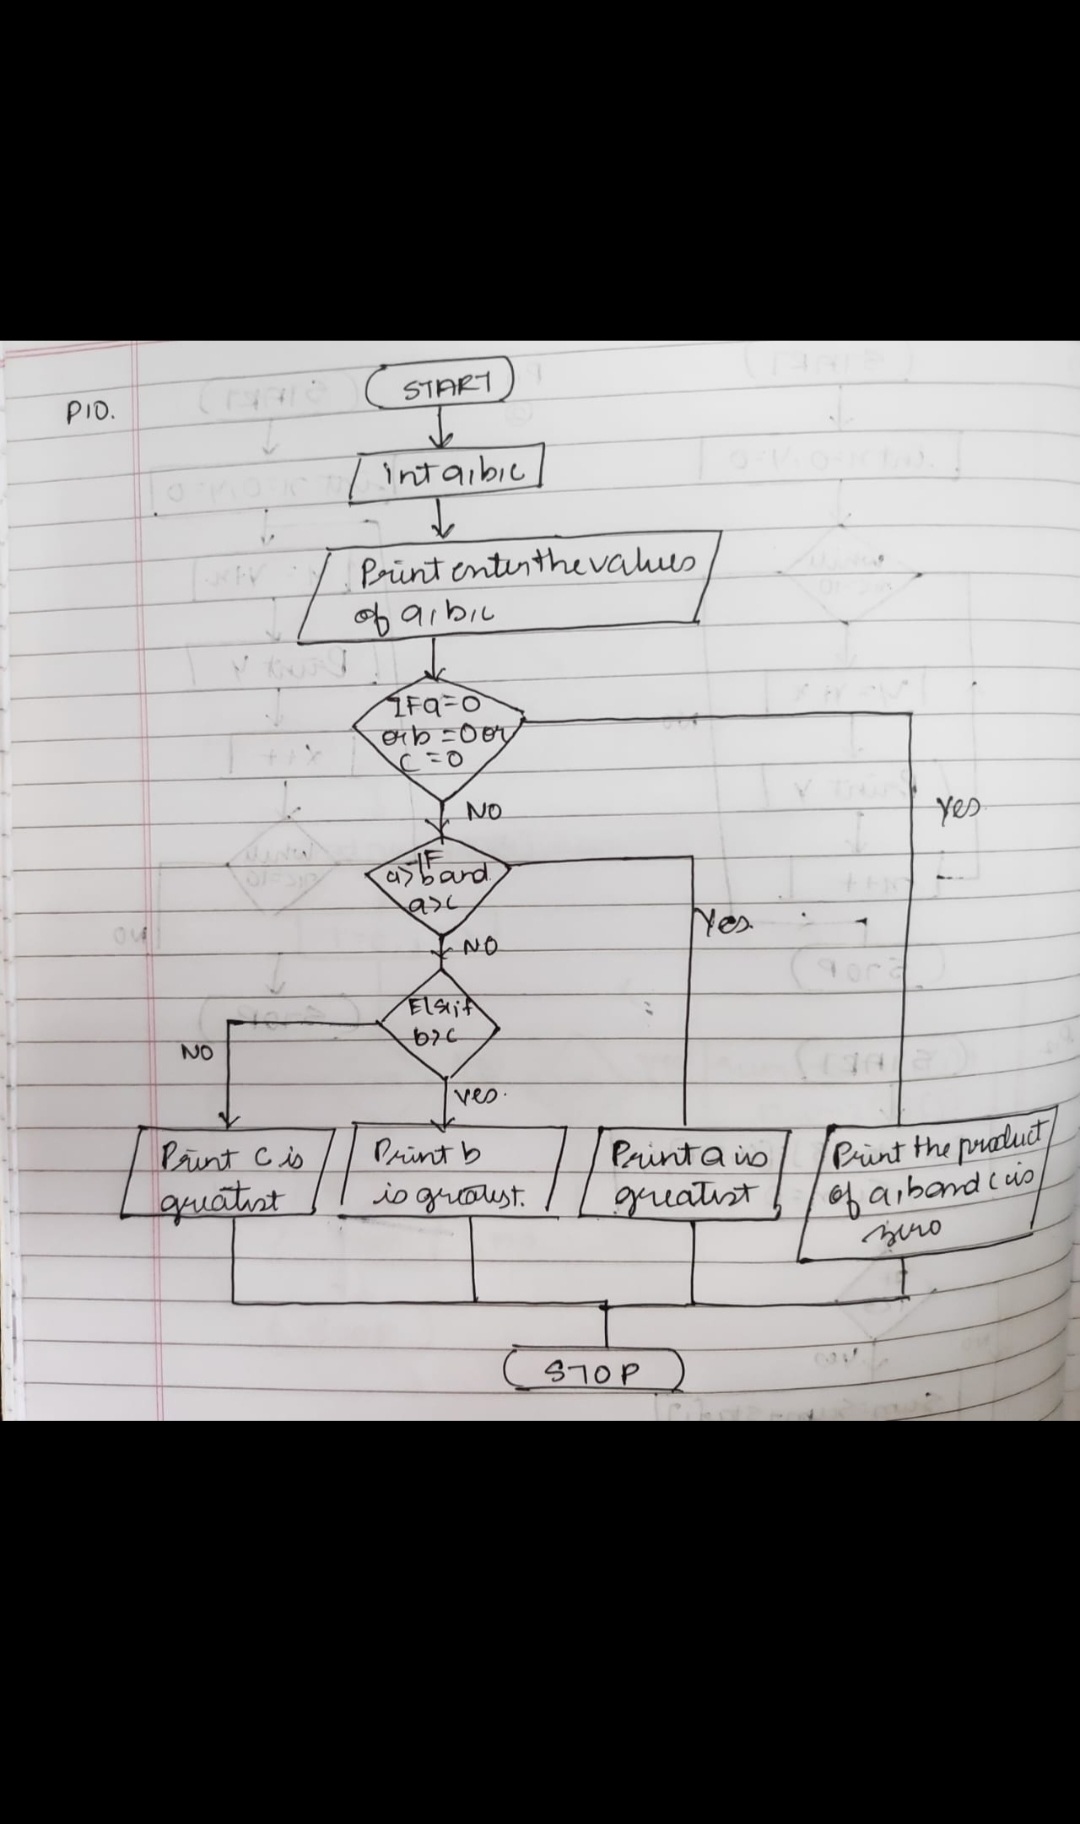 P10.
START
int a,b,c
Print enter the values
of a,b,c
IF a=0
or b=0 or
c=0
NO
Yes
IF
a>b and
a>c
Yes
NO
Else if
b>c
NO
yes
Print c is
greatest
Print b
is greatest.
Print a is
greatest
Print the product
of a,b and c is
zero
STOP